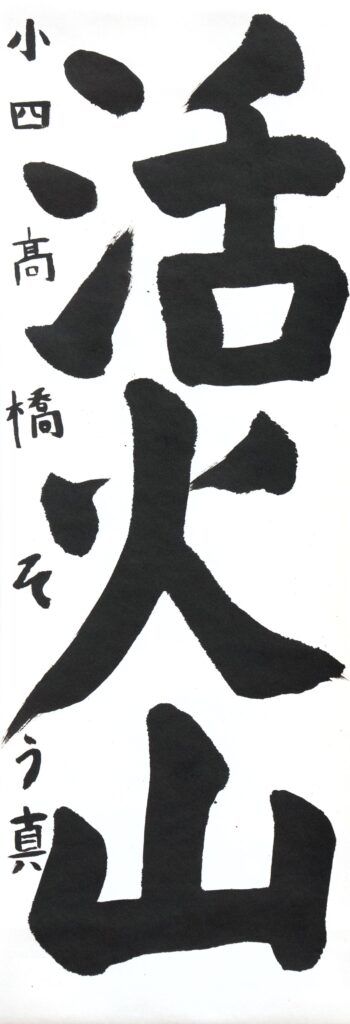 活火山
小四髙橋そう真